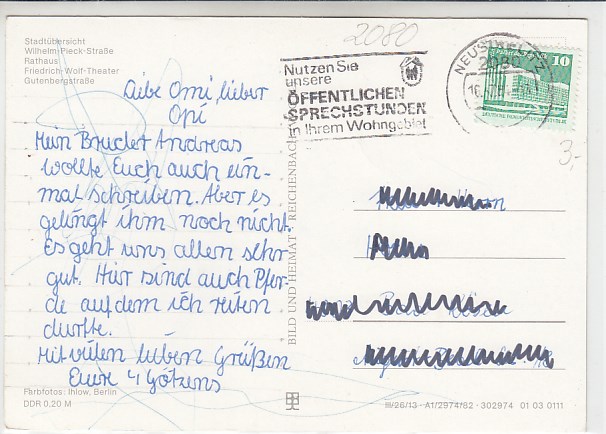 2080
Stadtübersicht
Wilhelm-Pieck-Straße
Rathaus
Friedrich-Wolf-Theater
Gutenbergstraße
Nutzen Sie
unsere
ÖFFENTLICHEN
SPRECHSTUNDEN
in Ihrem Wohngebiet
NEUSTRELITZ
2080
10
3,-
Liebe Omi, lieber
Opi
Mein Bruder Andreas
wollte Euch auch ein-
mal schreiben. Aber es
gelingt ihm noch nicht.
Es geht uns allen sehr
gut. Hier sind auch Pfer-
de auf dem ich reiten
durfte.
Mit vielen lieben Grüßen
Eure 4 Götzens
BILD UND HEIMAT REICHENBACH
Farbfotos: Ihlow, Berlin
DDR 0,20 M
III/26/13 · A1/2974/82 · 302974 01 03 0111